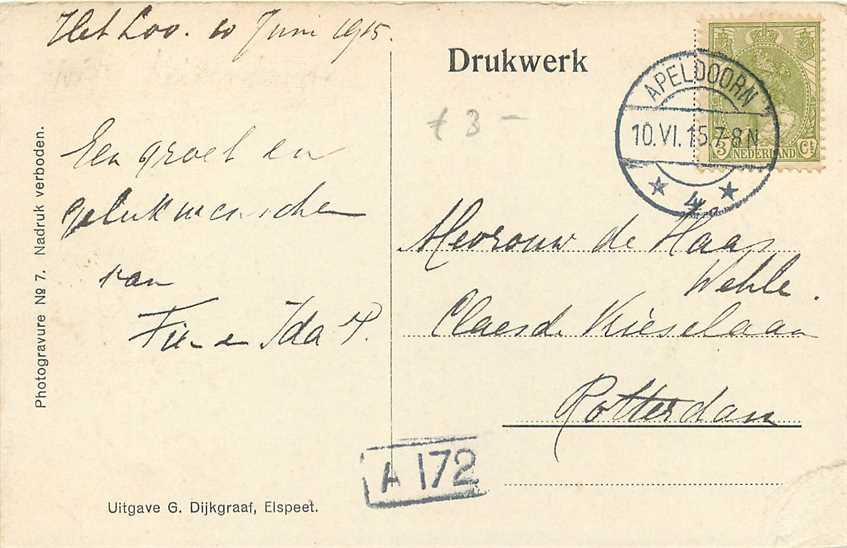 Het Loo. 10 Juni 1915.
Drukwerk
APELDOORN
10.VI.15.7-8N
4
3 Ct
NEDERLAND
3 -
Een groet en
gelukwenschen
van
Fie en Ida P.
Mevrouw de Haas
Wehle.
Claes de Vrieselaan
Rotterdam
A 172
Photogravure No 7. Nadruk verboden.
Uitgave G. Dijkgraaf, Elspeet.